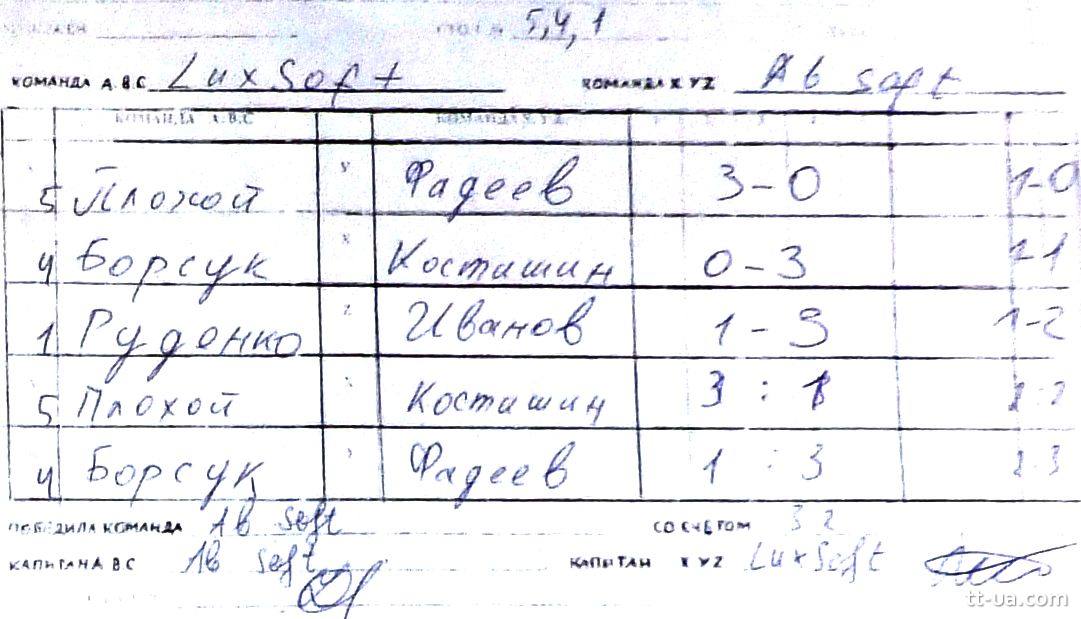 5, 4, 1
КОМАНДА А.В.С LuxSoft КОМАНДА X YZ Ab soft
КОМАНДА А.В.С КОМАНДА X.Y.Z
5 Плохой x Фадеев 3-0 1-0
4 Борсук x Костишин 0-3 1-1
1 Руденко z Иванов 1-3 1-2
5 Плохой Костишин 3:1 2-2
4 Борсук Фадеев 1:3 2-3
ПОБЕДИЛА КОМАНДА Ab Soft СО СЧЕТОМ 3 2
КАПИТАН А В С Ab Soft КАПИТАН X YZ LuxSoft
tt-ua.com